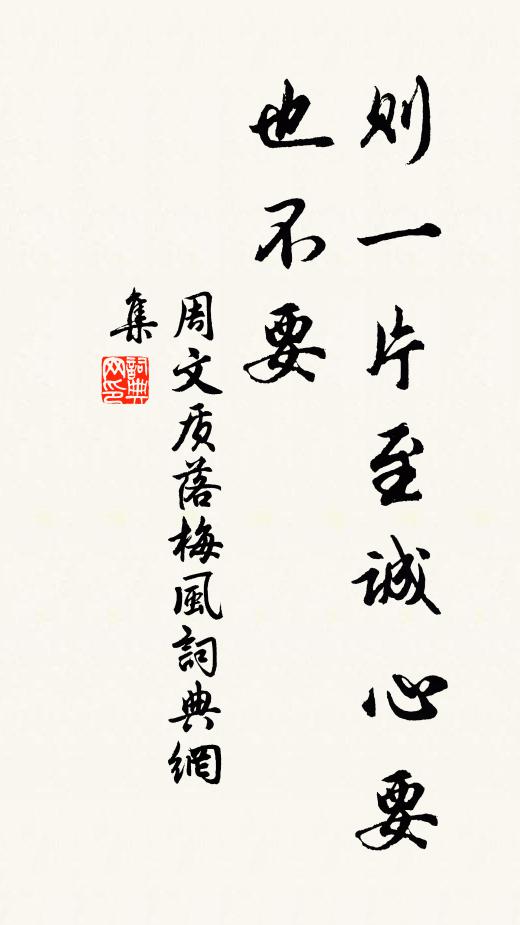 则一片至诚心要
也不要
周文质落梅风詞典網
集
詞典
网印